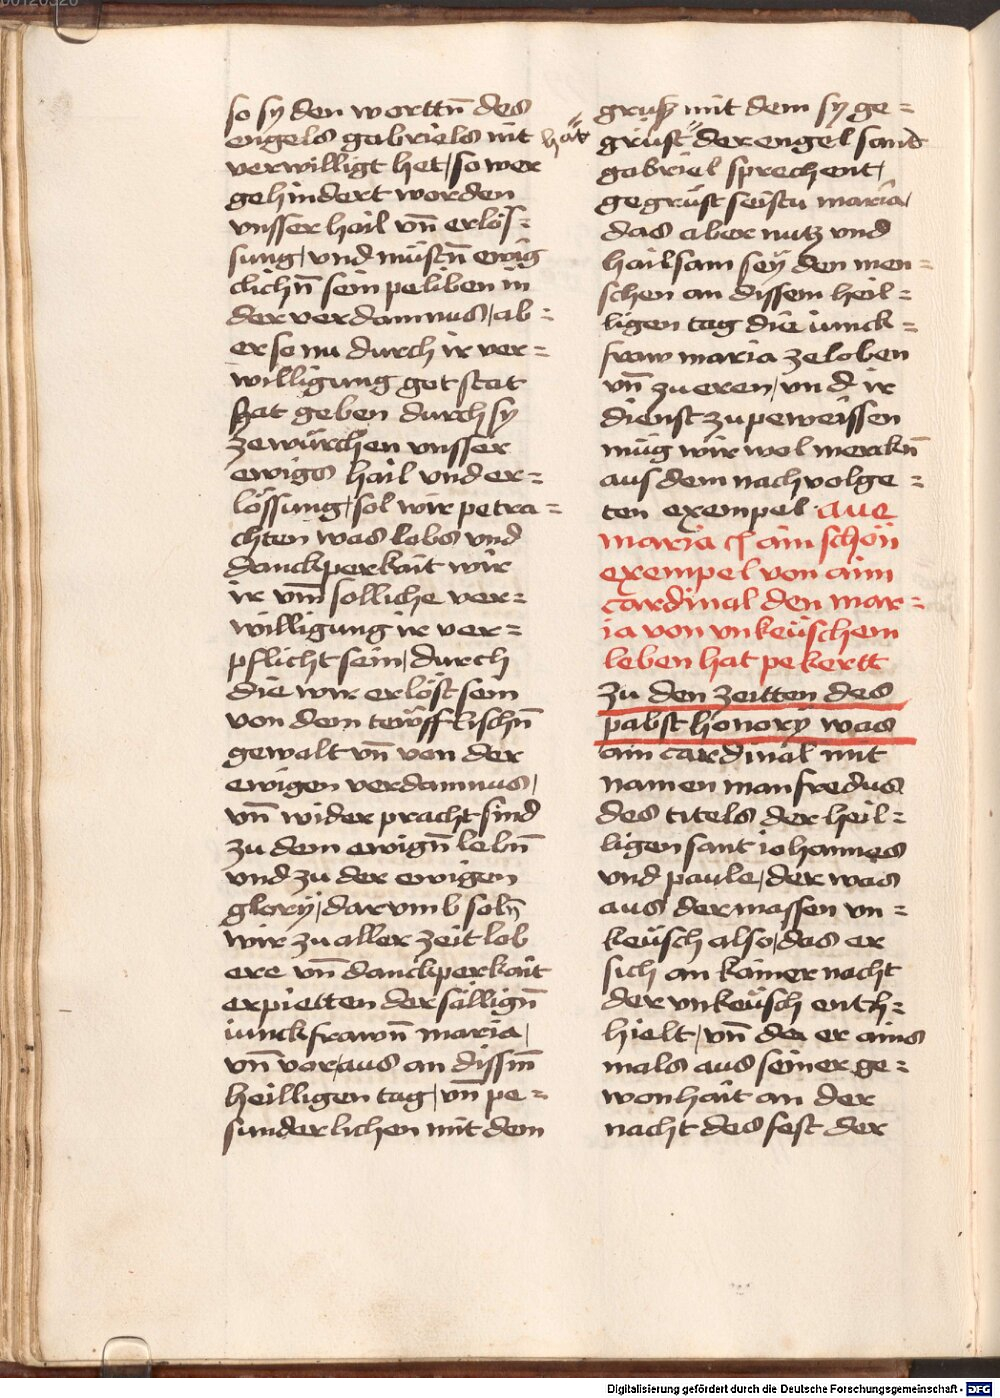 so sy den worttn̄ des
engels gabriels nit
verwilligt het / so wer
gehindert worden
vnsser hail vn̄ erlös=
sung / vnd müstn̄ ewig
clichn̄ sein peliben in
der verdamnus / ab=
er so nu durch ir ver=
willigung got stat
hat geben durch sy
zewürchen vnsser
ewigs hail vnd er=
lössung / sol wir petra=
chten was lobs vnd
danckperkait wir
ir vm̄ solliche ver=
willigung ir ver=
pflicht sein / durch
die wir erlöst sein
von dem tewffelischn̄
gewalt vn̄ von der
ewigen verdamnus /
vn̄ wider pracht sind
zu dem ewign̄ lebn̄
vnd zu der ewigen
glory / dar vmb soln̄
wir zu aller zeit lob
ere vn̄ danckperkait
erpietten der sälign̄
iunckfrawn̄ maria /
vn̄ vor aus an dissm̄
heilligen tag / vn̄ pe=
sunderlichen mit dem
grusz mit dem sy ge=
hat
grüst der engel sant
gabriel sprechent /
gegrüst seistu maria /
das aber nutz vnd
hailsam sey den men=
schen an dissem heil=
ligen tag die iunck=
fraw maria ze loben
vn̄ zu eren / vnd ir
dienst zu peweissen
müg wir wol merckn̄
aus dem nachvolge=
ten exempel . aue
maria ain schön
exempel von aim
cardinal den mar=
ia von vnkeüschem
leben hat pekertt
zu den zeitten des
pabst honory was
ain cardinal mit
namen manfredus
des titels der heil=
ligen sant iohannes
vnd paule / der was
aus der massen vn=
keüsch also / das er
sich an kainer nacht
der vnkeüsch enth=
hielt / vn̄ da er ains
mals aus seiner ge=
wonhait an der
nacht des fest der
Digitalisierung gefördert durch die Deutsche Forschungsgemeinschaft - DFG